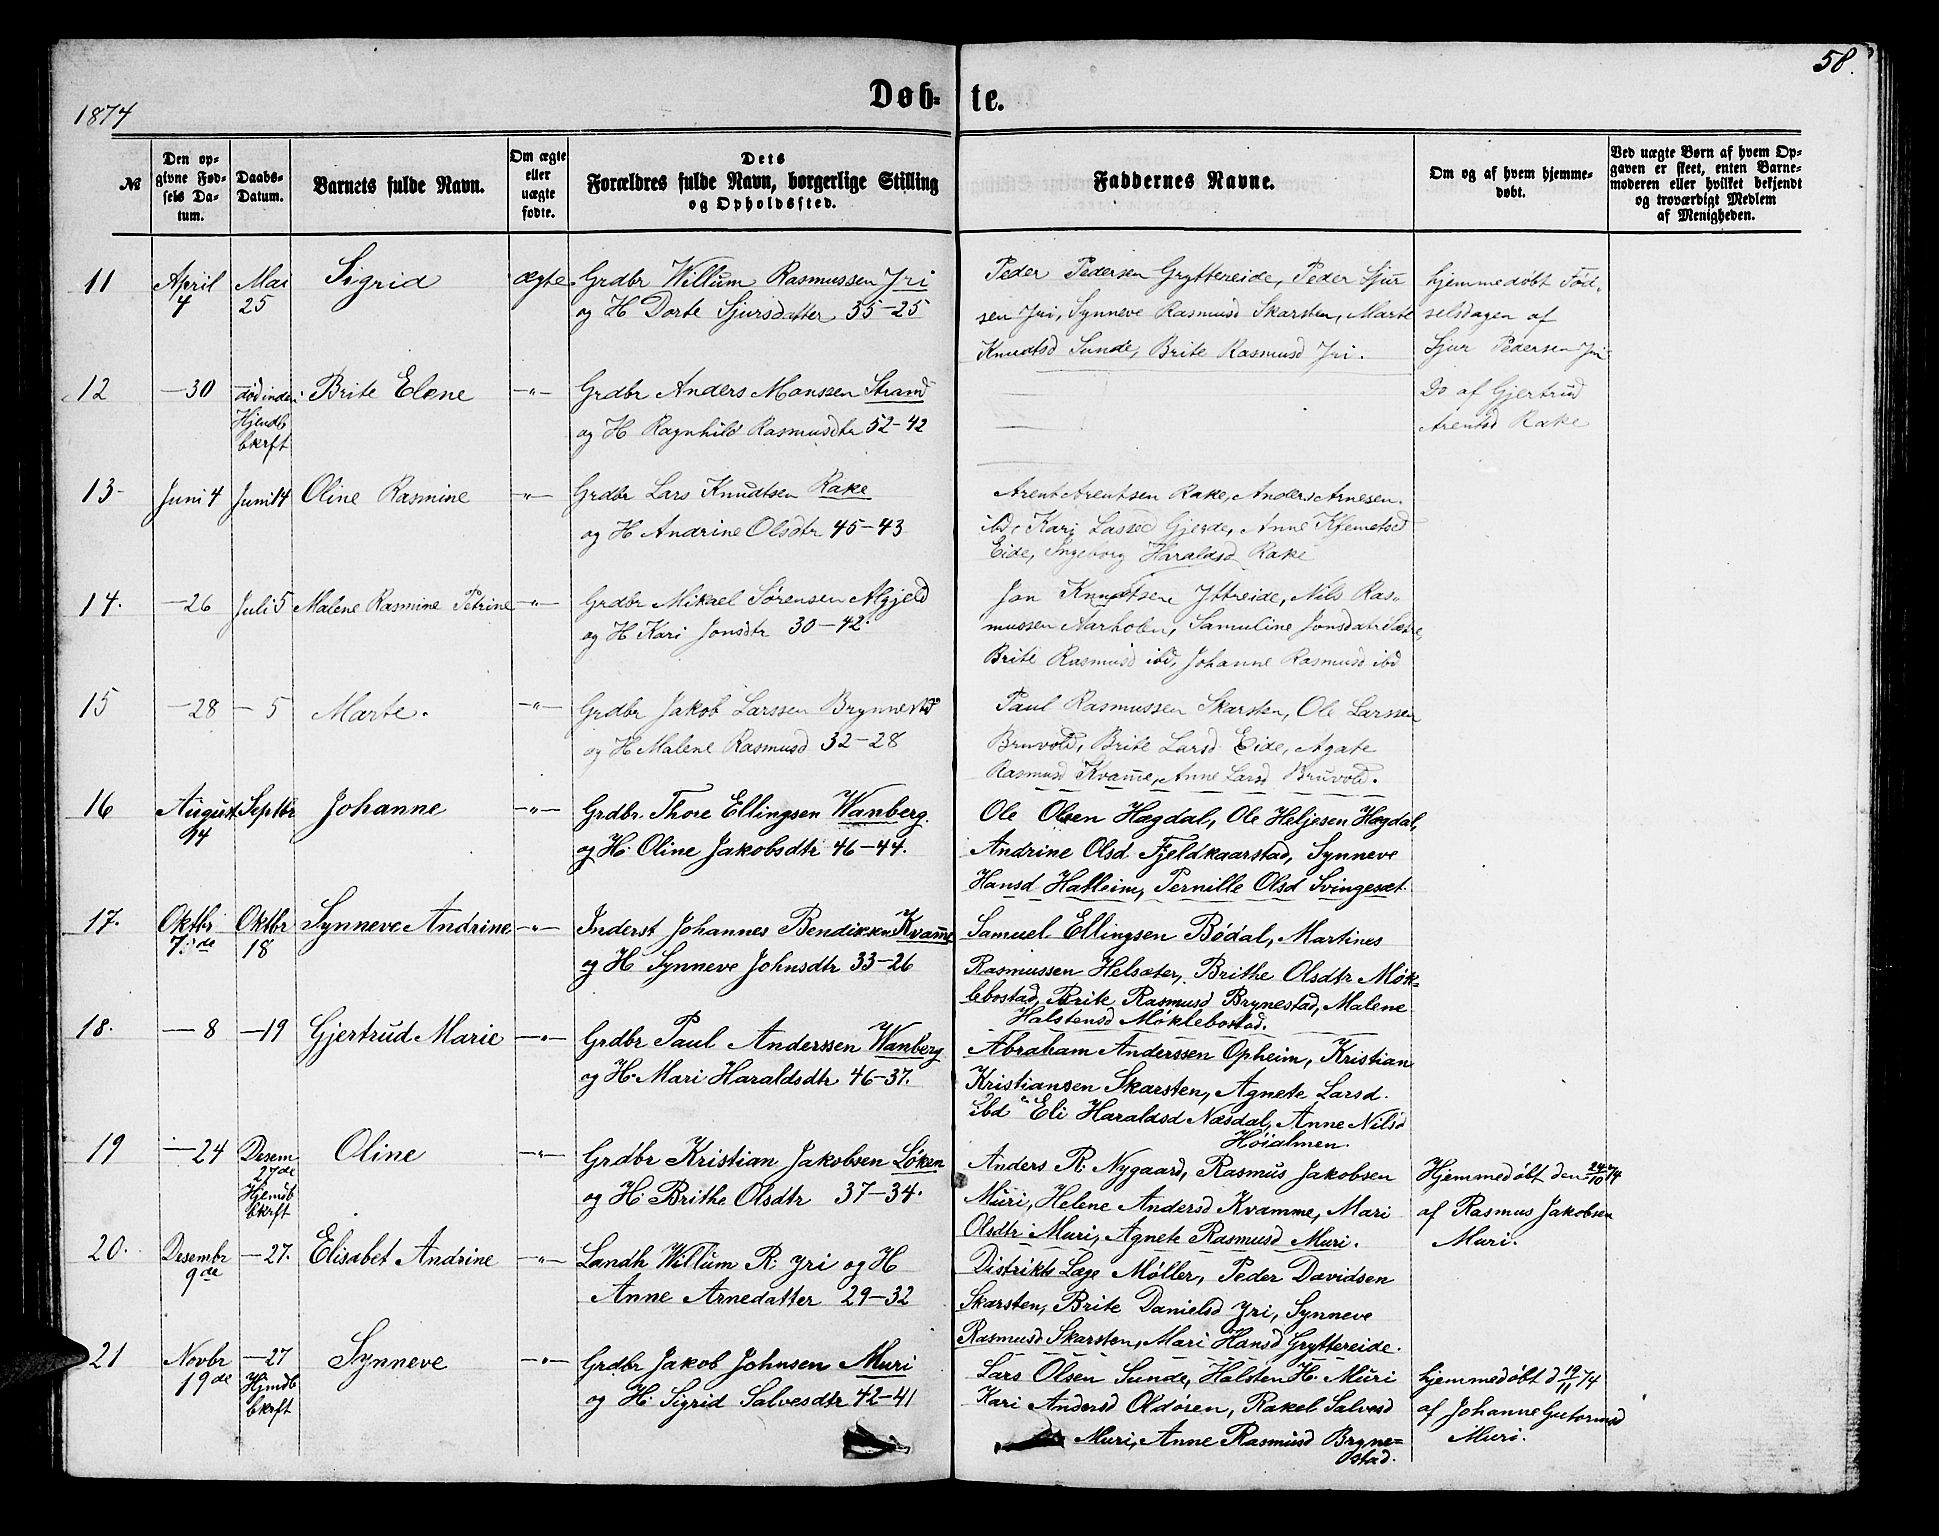 58.
1874
Døb- te.
№
Den opgivne Fødsels Datum.
Daabs-Datum.
Barnets fulde Navn.
Om ægte eller uægte fødte.
Dets Forældres fulde Navn, borgerlige Stilling og Opholdssted.
Faddernes Navne.
Om og af hvem hjemmedøbt.
Ved uægte Børn af hvem Opgaven er skeet, enten Barnemoderen eller hvilket bekjendt og troværdigt Medlem af Menigheden.
11 April 4 Mai 25 Sigrid ægte Grdbr Willum Rasmussen Jri
og H Dorte Sjursdatter 35-25
Peder Pedersen Gryttereide, Peder Sjur
sen Jri, Synneve Rasmusd Skarsten, Marte
Knudtsd Sunde, Brite Rasmusd Jri.
hjemmedøbt Fød-
selsdagen af
Sjur Pedersen Jri
12 — 30 død inden Hjemdb bkrft Brite Elene —"— Grdbr Anders Monssen Strand
og H Ragnhild Rasmusdtr 52-42
Do af Gjertrud
Arentsd Rake
13- Juni 4 Juni 14 Oline Rasmine —"— Grdbr Lars Knudtsen Rake
og H Andrine Olsdtr 45-43
Arent Arentsen Rake, Anders Arnesen
ibd, Kari Lassed Gjerde, Anne Klemetsd
Eide, Ingeborg Haraldsd Rake
14. — 26 Juli 5 Malene Rasmine Petrine —"— Grdbr Mikael Sørensen Algjeld
og H Kari Jonsdtr 30-42.
Jon Knudtsen Yttreide, Nils Ras-
mussen Aarholen, Samuline Jonsdatr Sætre,
Brite Rasmusd ibd, Johanne Rasmusd ibd
15 — 28 — 5 Marte. —"— Grdbr Jakob Larssen Brynnestd
og H Malene Rasmusd 32-28
Paul Rasmussen Skarsten, Ole Larssen
Bruvold, Brite Larsd Eide, Agate
Rasmusd Kvame, Anne Larsd Bruvold.
16 August 24 Septbr Johanne —"— Grdbr. Thore Ellingsen Wanberg.
og H. Oline Jakobsdtr 46-44.
Ole Olsen Hægdal, Ole Heljesen Hægdal,
Andrine Olsd. Fjeldkaarstad, Synneve
Hansd Hatleim, Pernille Olsd Svingeset.
17. Oktbr 7de Oktbr 18 Synneve Andrine —"— Inderst Johannes Bendiksen Kvame
og H Synneve Johnsdtr 33-26
Samuel Ellingsen Bødal, Martines
Rasmussen Helsæter, Brithe Olsdtr Møk-
lebostad, Brite Rasmusd Brynestad, Malene
Halstensd Møklebostad.
18. — 8 — 19 Gjertrud Marie —"— Grdbr Paul Anderssen Wanberg
og H. Mari Haraldsdtr 46-37.
Abraham Anderssen Opheim, Kristian
Kristiansen Skarsten, Agnete Larsd.
ibd Eli Haraldsd Næsdal, Anne Nilsd
Høialmen.
19 — 24 Desem 27de Hjemdb bkrft Oline —"— Grdbr Kristian Jakobsen Løken
og H. Brithe Olsdtr 37-34.
Anders R. Nygaard, Rasmus Jakobsen
Muri, Helene Andersd Kvamme, Mari
Olsdtr Muri, Agnete Rasmusd Muri.
Hjemmedøbt den 24/10 74
af Rasmus Jakobsen
Muri.
20. Desembr 9de — 27. Elisabet Andrine —"— Landh Willum R. Jri og H
Anne Arnedatter 29-32
Distrikts Læge Møller, Peder Davidsen
Skarsten, Brite Danielsd Jri, Synneve
Rasmusd Skarsten, Mari Hansd Gryttereide.
21 Novbr 19de — 27 Hjmdb bkrft Synneve —"— Grdbr Jakob Johnsen Muri
og H. Sigrid Salvesdtr 42-41
Lars Olsen Sunde, Halsten H. Muri
Kari Andersd Oldøren, Rakel Salvesd
Muri, Anne Rasmusd Bryne=
stad.
hjemmedøbt d 19/11 74
af Johanne Guttormsd
Muri.